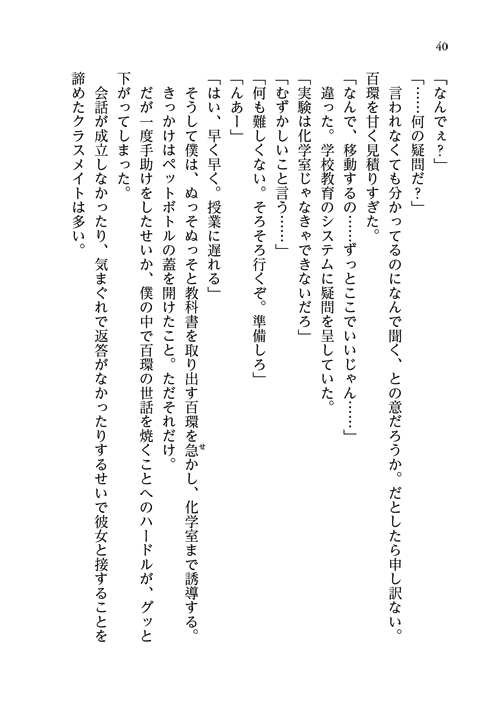 40
「なんでぇ？」
「……何の疑問だ？」
　言われなくても分かってるのになんで聞く、との意だろうか。だとしたら申し訳ない。
百環を甘く見積りすぎた。
「なんで、移動するの……ずっとここでいいじゃん……」
　違った。学校教育のシステムに疑問を呈していた。
「実験は化学室じゃなきゃできないだろ」
「むずかしいこと言う……」
「何も難しくない。そろそろ行くぞ。準備しろ」
「んあー」
「はい、早く早く。授業に遅れる」
　そうして僕は、ぬっそぬっそと教科書を取り出す百環を急かし、化学室まで誘導する。
せ
　きっかけはペットボトルの蓋を開けたこと。ただそれだけ。
　だが一度手助けをしたせいか、僕の中で百環の世話を焼くことへのハードルが、グッと
下がってしまった。
　会話が成立しなかったり、気まぐれで返答がなかったりするせいで彼女と接することを
諦めたクラスメイトは多い。